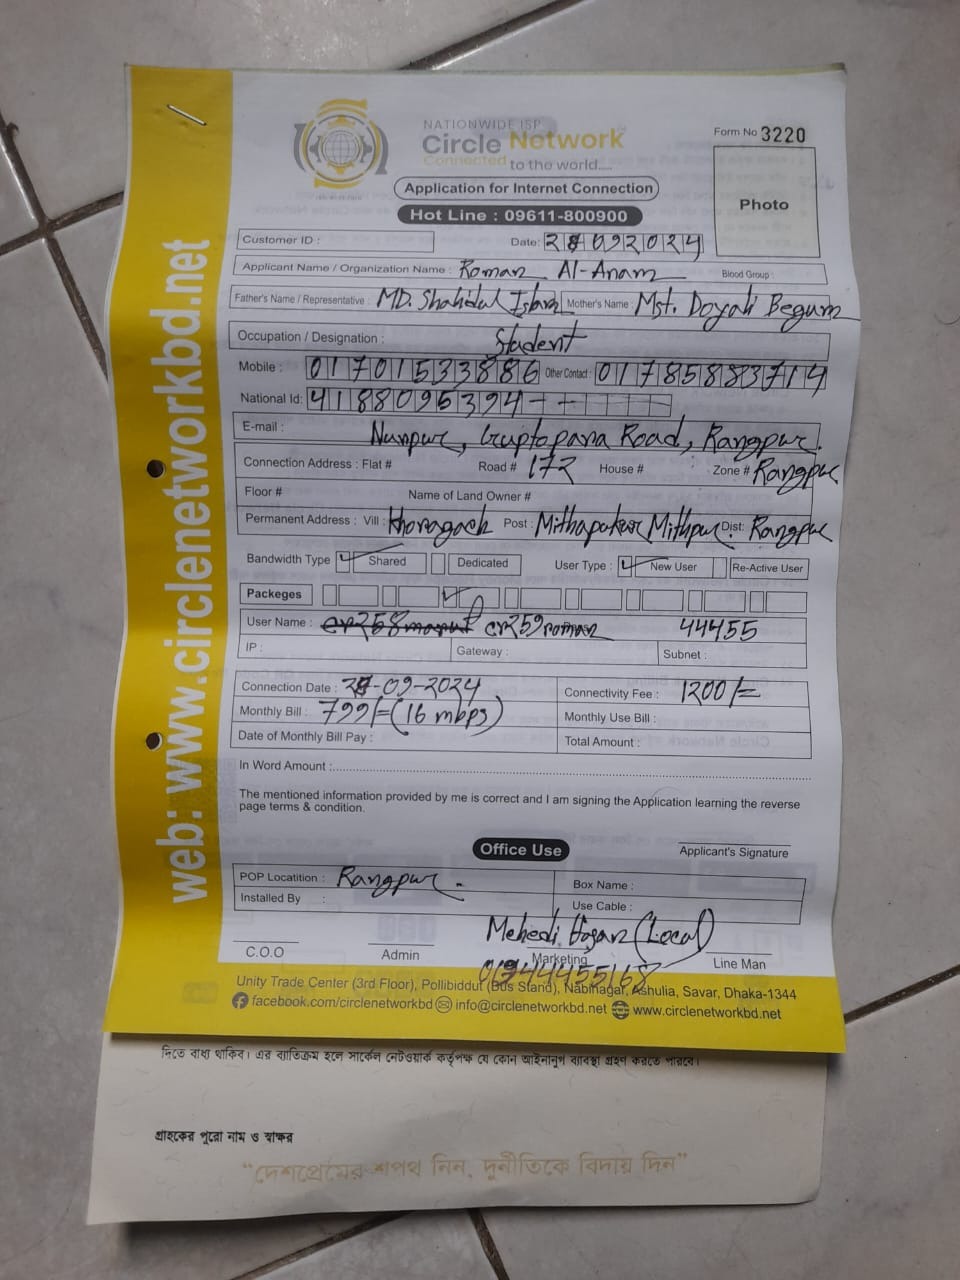 NATIONWIDE ISP
Circle Network
Connected to the world.....
Form No 3220
Photo
Application for Internet Connection
Hot Line : 09611-800900
Customer ID :
Date: 28092024
Applicant Name / Organization Name : Roman Al-Anam Blood Group :
Father's Name / Representative : MD. Shahidul Islam Mother's Name : Mst. Doyali Begum
Occupation / Designation : Student
Mobile : 01701533886 Other Contact : 01785883714
National Id: 4188095394--
E-mail : Nurpur, Guptopara Road, Rangpur.
Connection Address : Flat # Road # 172 House # Zone # Rangpur
Floor # Name of Land Owner #
Permanent Address : Vill : Khoragach Post : Mithapukur Mithpur Dist: Rangpur
Bandwidth Type Shared Dedicated User Type : New User Re-Active User
Packeges
User Name : cr259roman 44455
IP : Gateway : Subnet :
Connection Date : 28-09-2024 Connectivity Fee : 1200/=
Monthly Bill : 799/=(16 mbps) Monthly Use Bill :
Date of Monthly Bill Pay : Total Amount :
In Word Amount :
The mentioned information provided by me is correct and I am signing the Application learning the reverse
page terms & condition.
Office Use
Applicant's Signature
POP Locatition : Rangpur. Box Name :
Installed By : Use Cable :
Mehedi Hasan (Local)
C.O.O Admin Marketing Line Man
01944455168
Unity Trade Center (3rd Floor), Pollibiddut (Bus Stand), Nabinagar, Ashulia, Savar, Dhaka-1344
facebook.com/circlenetworkbd info@circlenetworkbd.net www.circlenetworkbd.net
web: www.circlenetworkbd.net
দিতে বাধ্য থাকিব। এর ব্যতিক্রম হলে সার্কেল নেটওয়ার্ক কর্তৃপক্ষ যে কোন আইনানুগ ব্যবস্থা গ্রহণ করতে পারবে।
গ্রাহকের পুরো নাম ও স্বাক্ষর
“দেশপ্রেমের শপথ নিন, দুর্নীতিকে বিদায় দিন”